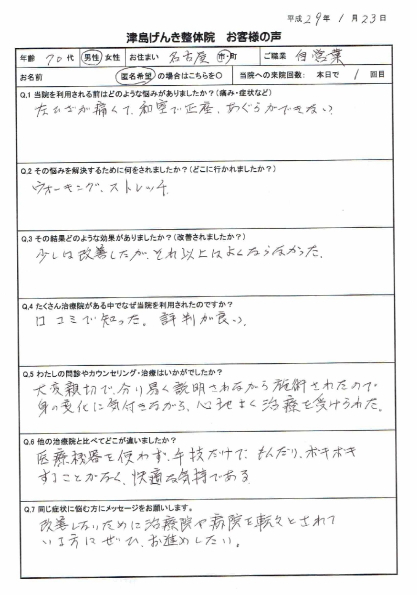 平成 29年 1月 23日
津島げんき整体院 お客様の声
年齢 70代 男性 女性 お住まい 名古屋 市・町 ご職業 自営業
お名前 匿名希望 の場合はこちらを○ 当院への来院回数: 本日で 1 回目
Q.1 当院を利用される前はどのような悩みがありましたか?(痛み・症状など)
左ひざが痛くて、和室で正座、あぐらができない
Q.2 その悩みを解決するために何をされましたか?(どこに行かれましたか?)
ウォーキング、ストレッチ
Q.3 その結果どのような効果がありましたか?(改善されましたか?)
少しは改善したが、それ以上はよくならなかった。
Q.4 たくさん治療院がある中でなぜ当院を利用されたのですか?
口コミで知った。評判が良い。
Q.5 わたしの問診やカウンセリング・治療はいかがでしたか?
大変親切で、分り易く説明されながら施術されたので
身の変化に気付きながら、心地よく治療を受けられた。
Q.6 他の治療院と比べてどこが違いましたか?
医療機器を使わず、手技だけで、もんだり、ボキボキ
することがなく、快適な気持である
Q.7 同じ症状に悩む方にメッセージをお願いします。
改善しないために治療院や病院を転々とされて
いる方にぜひ、お進めしたい。